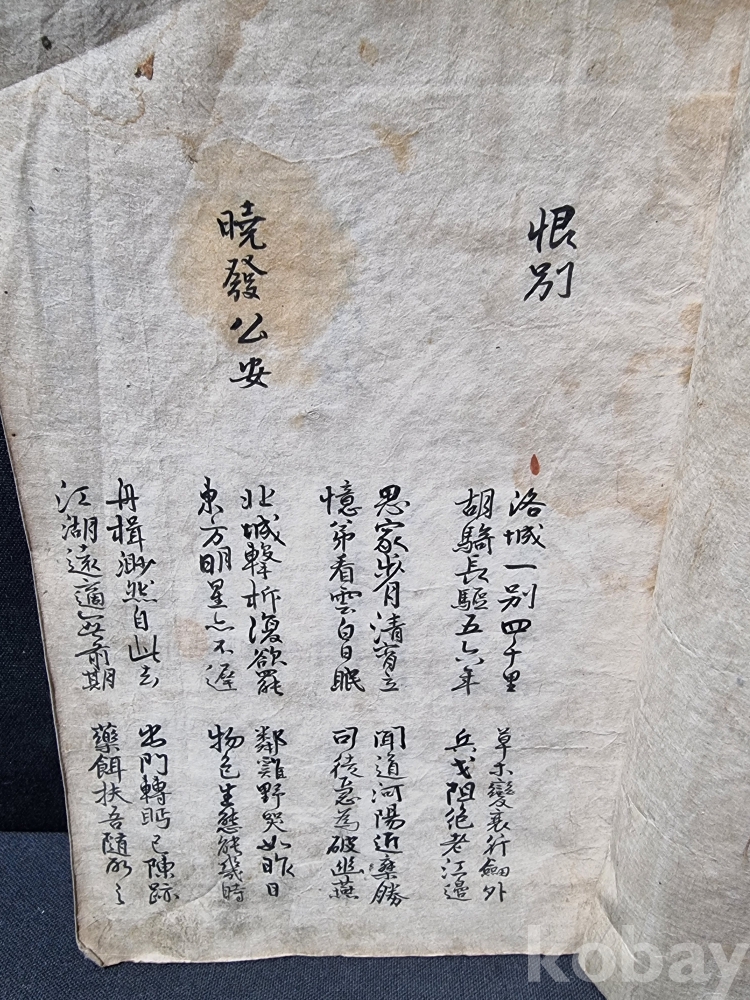 恨別
洛城一別四千里
胡騎長驅五六年
草木變衰行劔外
兵戈阻絶老江邊
思家步月清宵立
憶弟看雲白日眠
聞道河陽近乘勝
司徒急為破幽燕
曉發公安
北城擊柝復欲罷
東方明星亦不遲
鄰雞野哭如昨日
物色生態能幾時
舟楫渺然自此去
江湖遠適無前期
出門轉眄已陳跡
藥餌扶吾随所之
kobay